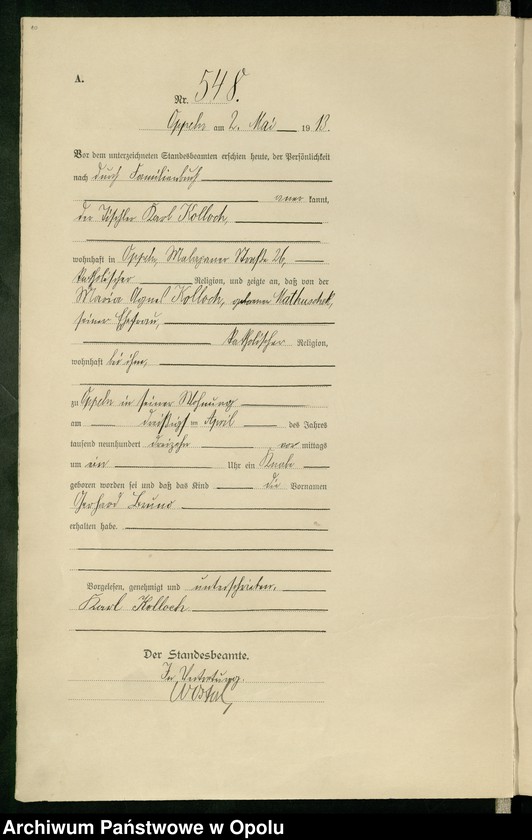 A.
Nr. 548.
Oppeln am 2. Mai 1913.
Vor dem unterzeichneten Standesbeamten erschien heute, der Persönlichkeit
nach durch Familienbuch
aner kannt,
der Tischler Karl Kolloch,
wohnhaft in Oppeln, Malapaner Straße 26,
katholischer Religion, und zeigte an, daß von der
Maria Agnes Kolloch, geborene Mathuschek,
seiner Ehefrau,
katholischer Religion,
wohnhaft bei ihm,
zu Oppeln in seiner Wohnung
am dreißigsten April des Jahres
tausend neunhundert dreizehn vor mittags
um ein Uhr ein Knabe
geboren worden sei und daß das Kind die Vornamen
Gerhard Bruno
erhalten habe.
Vorgelesen, genehmigt und unterschrieben.
Karl Kolloch
Der Standesbeamte.
In Vertretung.
Archiwum Państwowe w Opolu